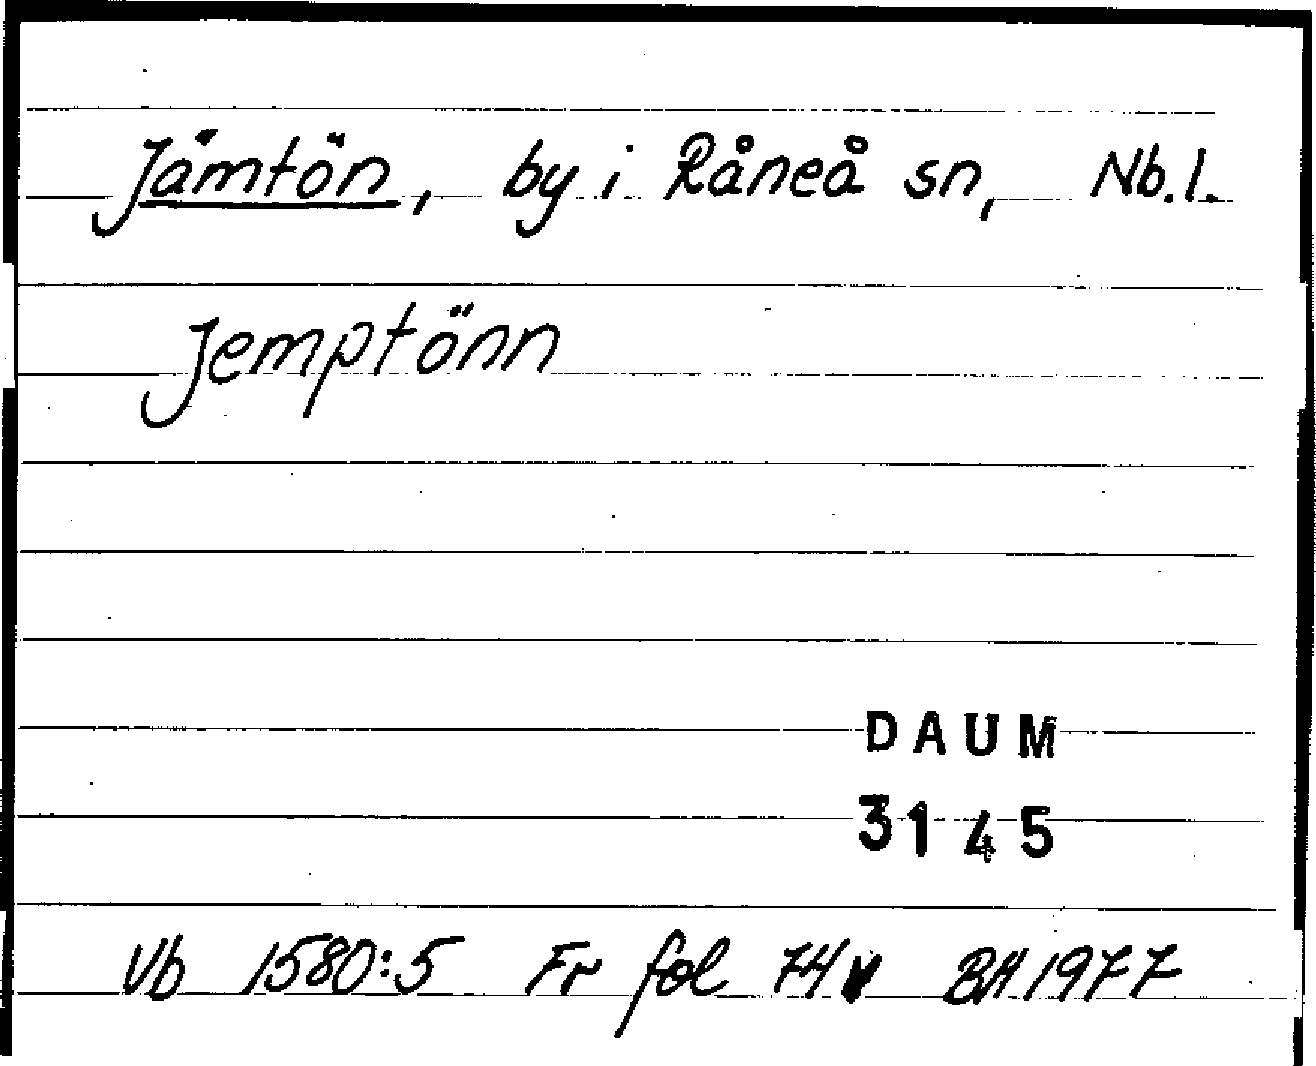 Jämtön, by i Råneå sn, Nb.l.
Jemptönn
DAUM
3145
Vb 1580:5 Fr fol 74v BH 1977